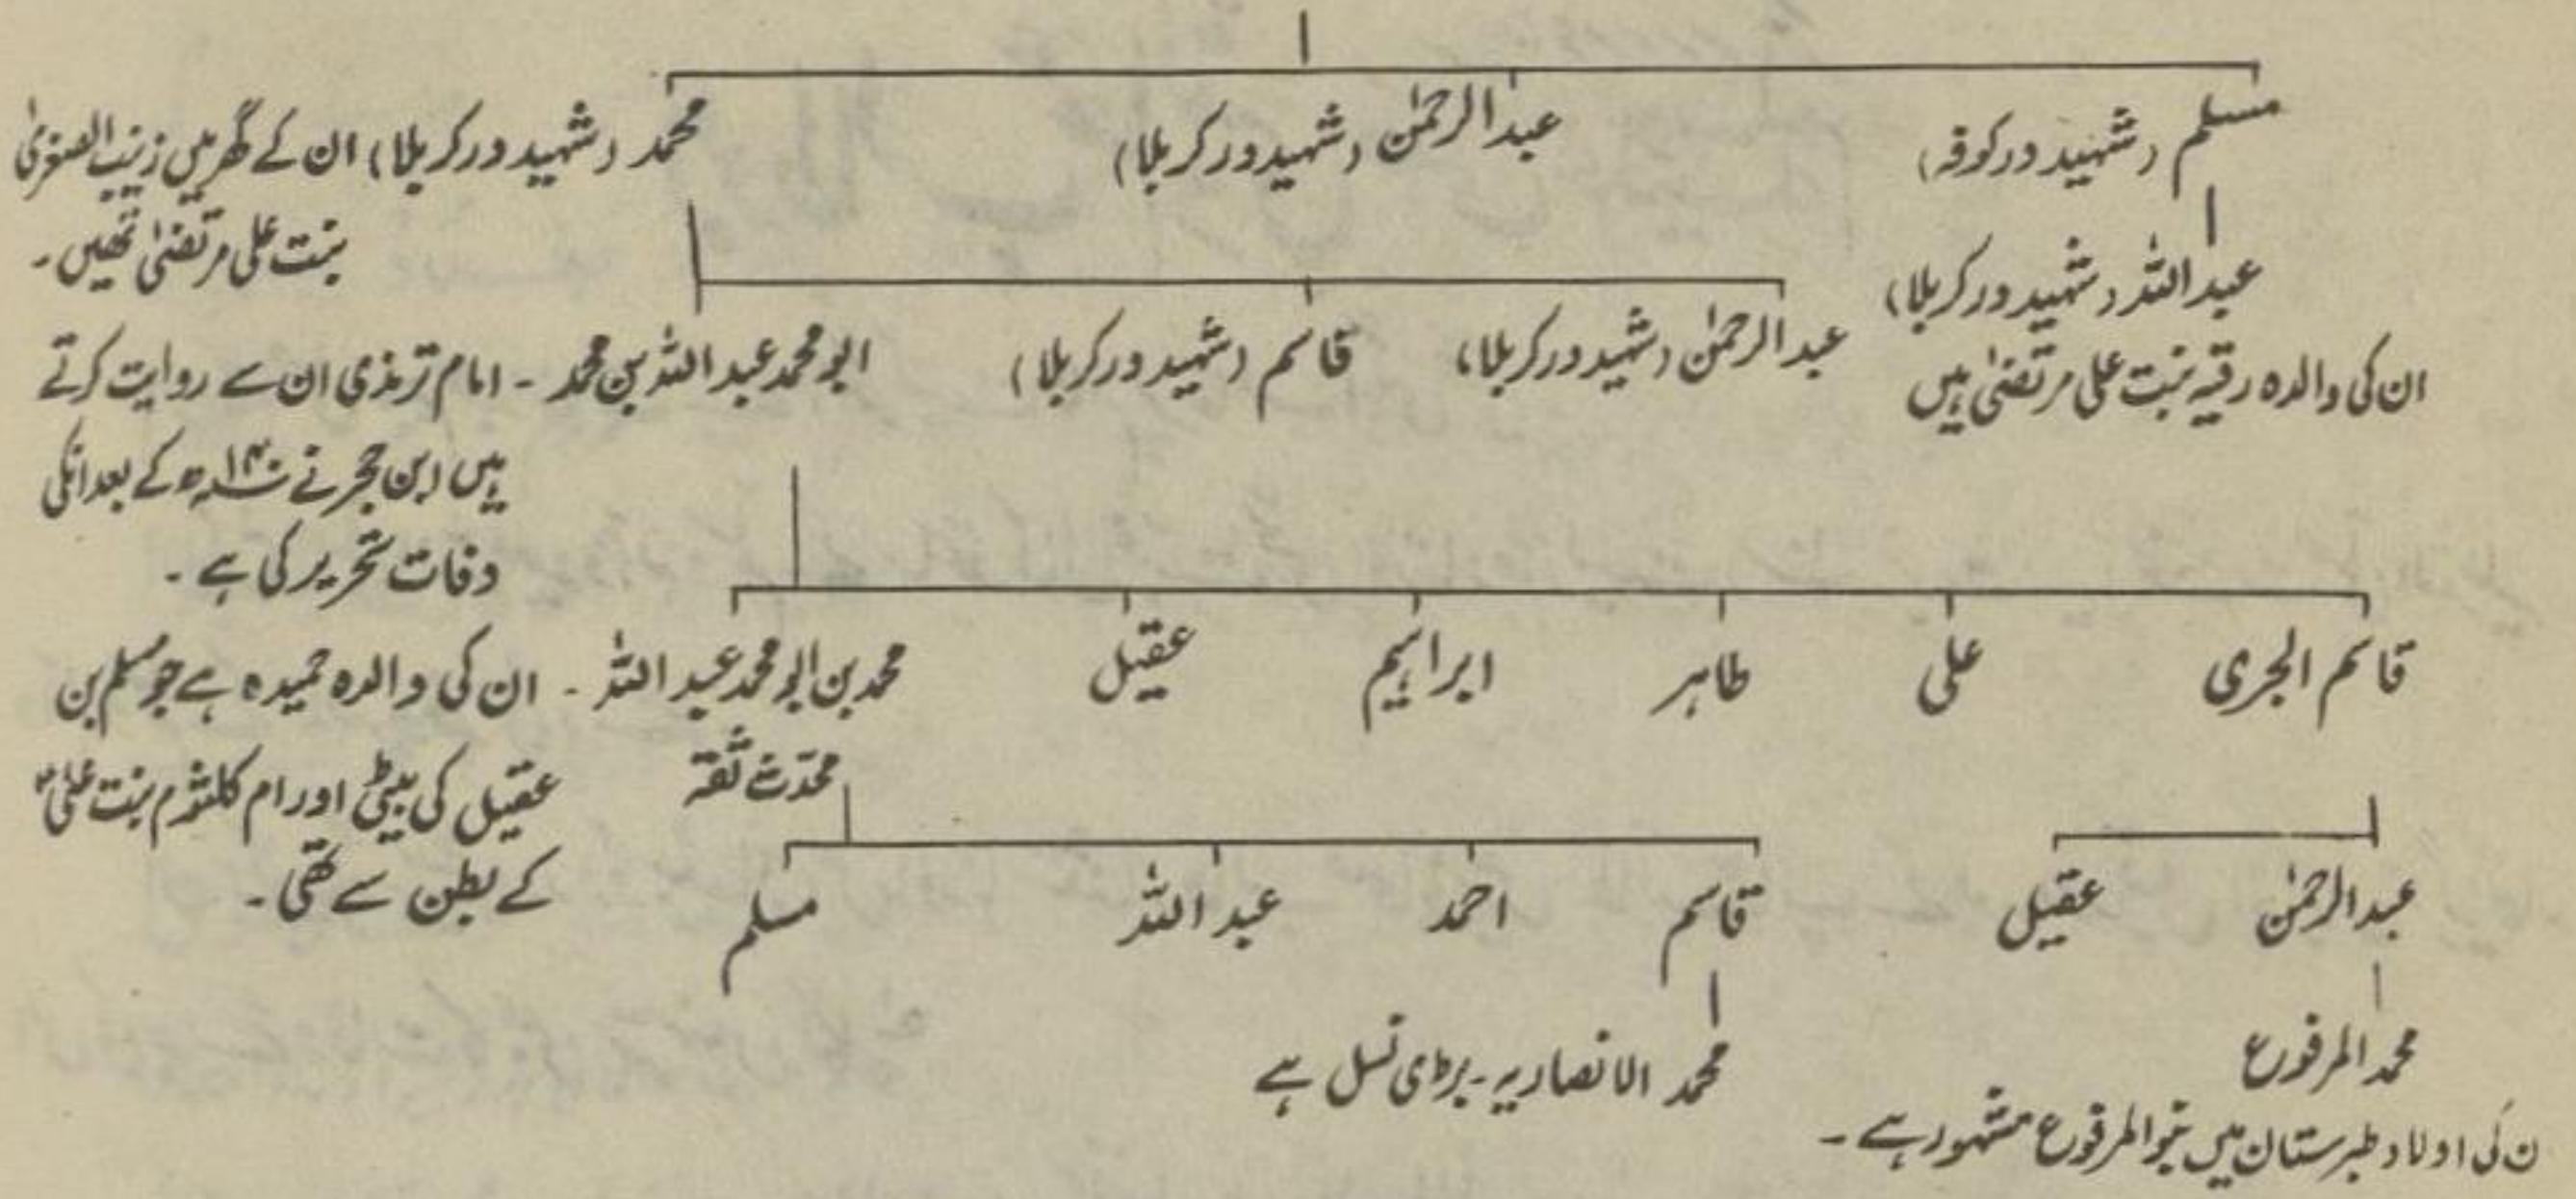 مسلم (شہید در کوفہ)
عبدالرحمٰن (شہید در کربلا)
محمد (شہید در کربلا) ان کے گھر میں زینب الصغریٰ
بنت علی مرتضیٰ تھیں۔
عبداللہ (شہید در کربلا)
ان کی والدہ رقیہ بنت علی مرتضیٰ ہیں
عبدالرحمٰن (شہید در کربلا)
قاسم (شہید در کربلا)
ابو محمد عبداللہ بن محمد ۔ امام ترمذی ان سے روایت کرتے
ہیں ابن حجر نے ۱۴۰ھ کے بعد انکی
وفات تحریر کی ہے۔
قاسم الجری
علی
طاہر
ابراہیم
عقیل
محمد بن ابو محمد عبداللہ ۔ ان کی والدہ حمیدہ ہے جو مسلم بن
محدث ثقہ
عقیل کی بیٹی اور ام کلثوم بنت علیؓ
کے بطن سے تھی۔
عبدالرحمٰن
عقیل
قاسم
احمد
عبداللہ
مسلم
محمد المرفوع
محمد الانصاریہ۔ بڑی نسل ہے
ن کی اولاد طبرستان میں بنو المرفوع مشہور ہے۔